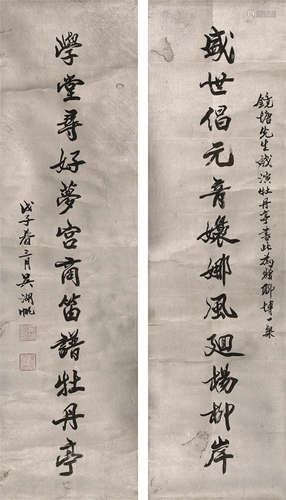 鏡塘先生戏演牡丹亭書此為贈聊博一粲
盛世倡元音嬝娜風廻楊柳岸
學堂尋好夢宮商笛譜牡丹亭
戊子春三月吳湖帆